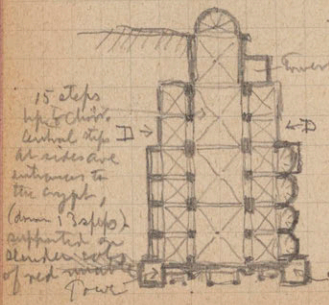 Tower
15 steps
up to choir.
central steps
D → ← D
At sides are
entrances to
the crypt,
(down 13 steps)
supported on
slender cols
of red marble
Tower